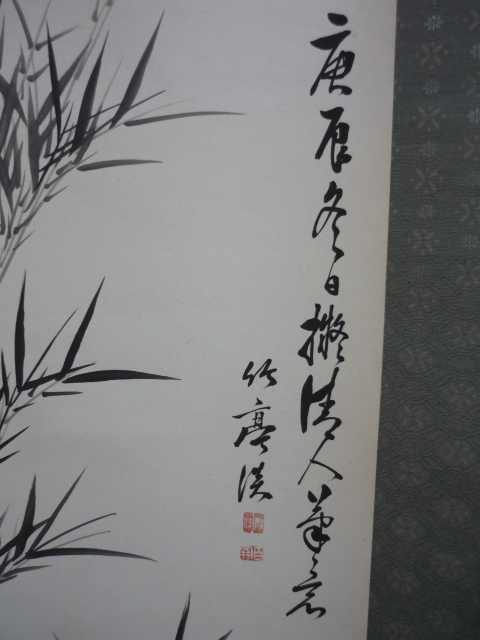 庚辰冬日擬清人筆意
竹亭漢